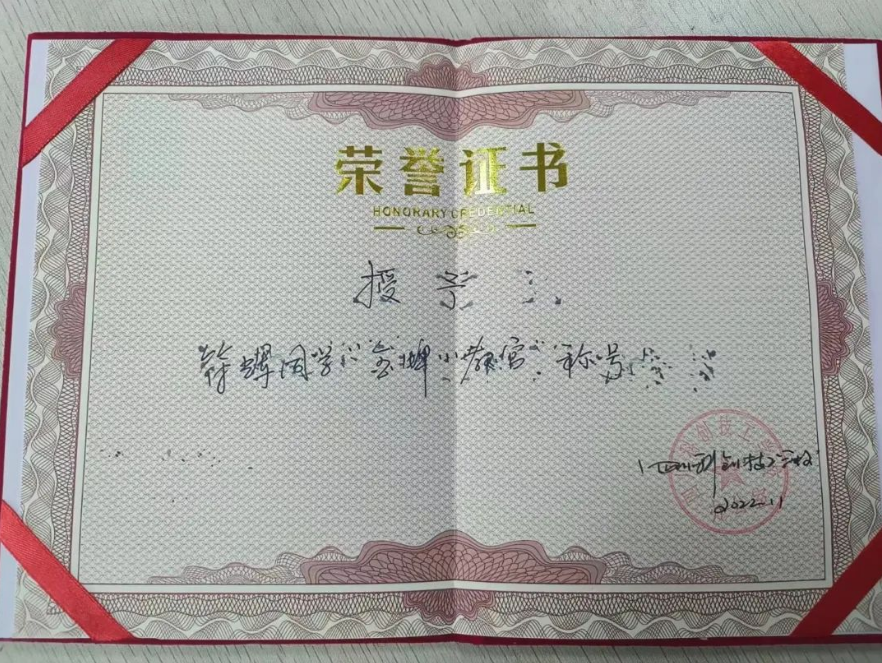 荣誉证书
HONORARY CREDENTIAL
授予
同学"金牌小教官"称号
四川科创技工学校
2022.11